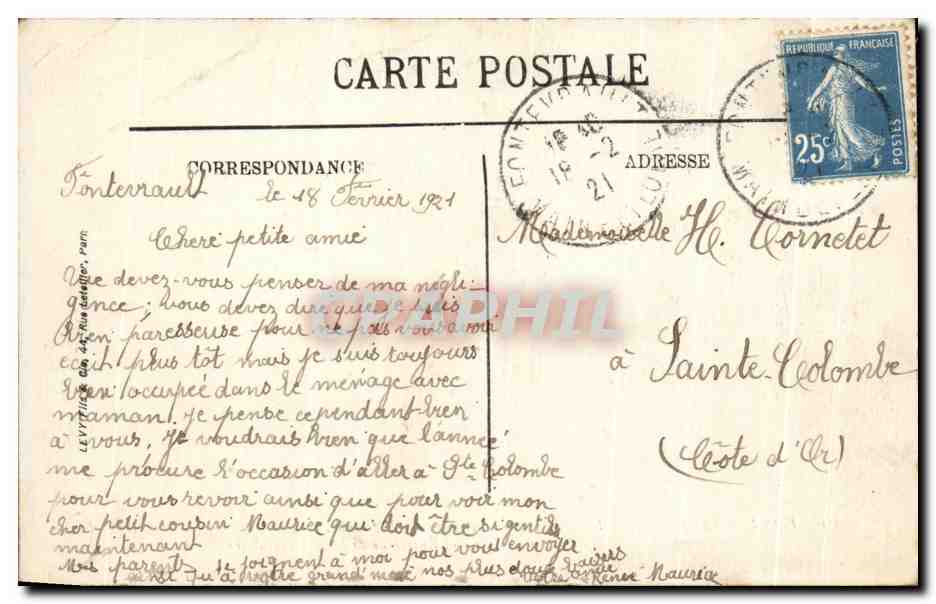 CARTE POSTALE
RÉPUBLIQUE FRANÇAISE
25c
POSTES
FONTEVRAULT
18 -2
21
CORRESPONDANCE
ADRESSE
Fontevrault le 18 Février 1921
Chere petite amie
Que devez-vous penser de ma négli-
gence; vous devez dire que je suis
bien paresseuse pour ne pas vous avoir
écrit plus tôt mais je suis toujours
bien occupée dans le ménage avec
maman. Je pense cependant bien
à vous. Je voudrais bien que l'année
me procure l'occasion d'aller à Ste Colombe
pour vous revoir ainsi que pour voir mon
cher petit cousin Maurice qui doit être si gentil
maintenant
Mes parents se joignent à moi pour vous envoyer
ainsi qu'à votre grand'mère nos plus doux baisers
Votre amie Renée Maurice
Mademoiselle H. Cornetet
à Sainte-Colombe
(Côte d'Or)
LEVY Fils & Cie, 44, Rue Letellier, Paris
CPAPHIL